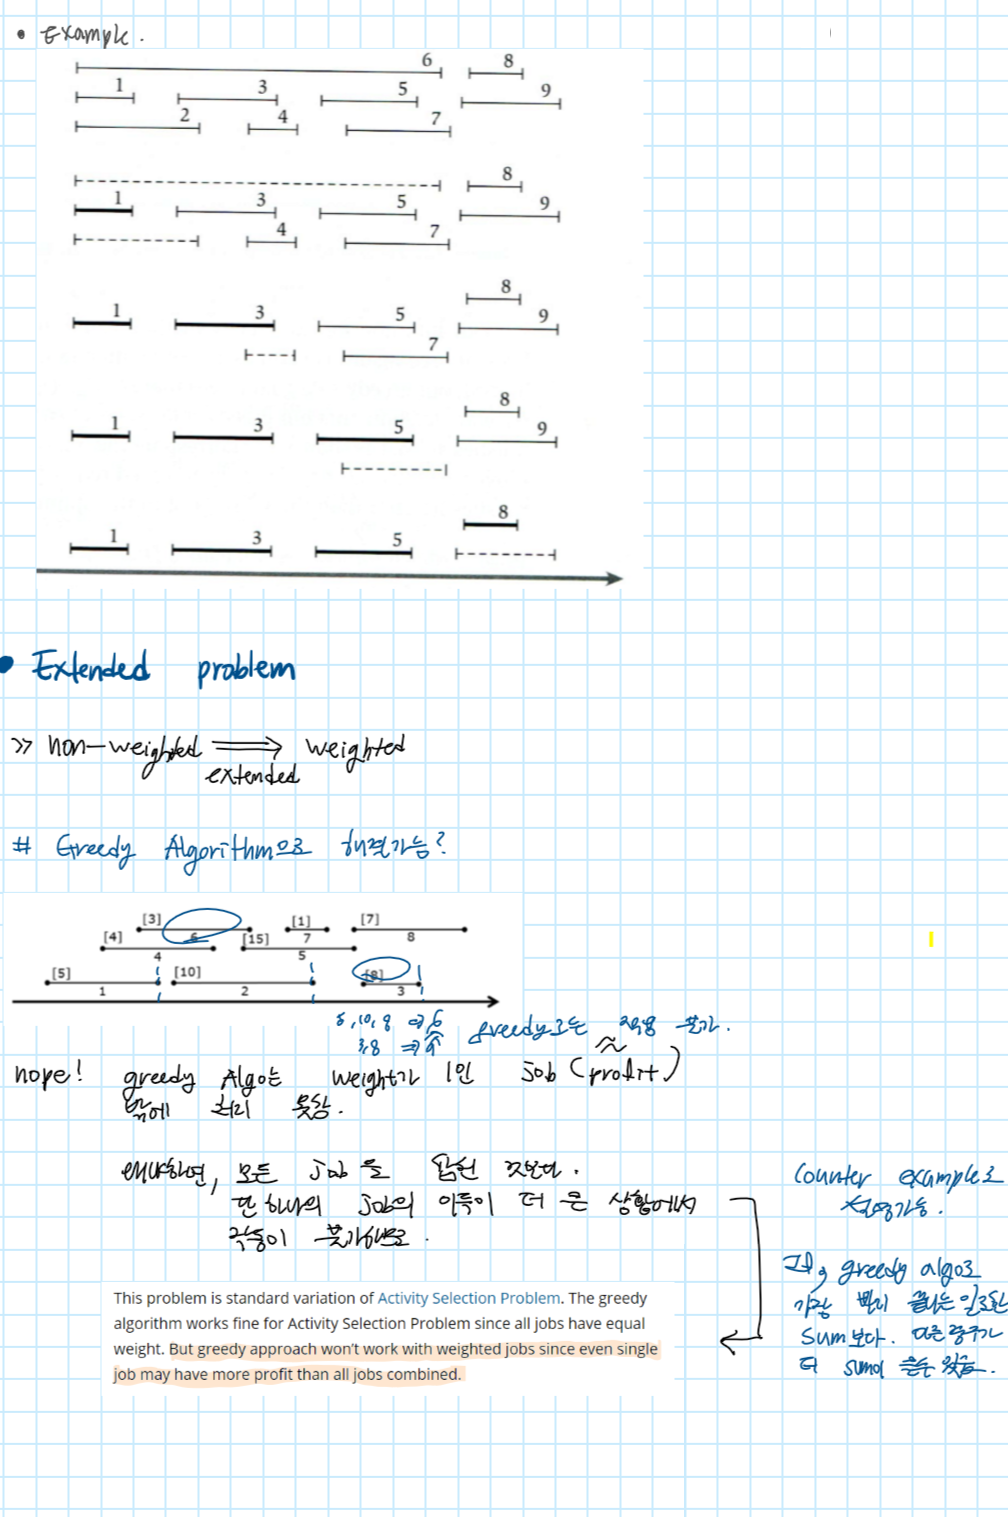 • Example.
6 8
1 3 5 9
2 4 7
8
1 3 5 9
4 7
8
1 3 5 9
7
8
1 3 5 9
8
1 3 5
• Extended problem
>> non-weighted ⟹ weighted
extended
# Greedy Algorithm으로 해결가능?
[3] [1] [7]
[4] 6 [15] 7 8
4 5
[5] [10] [8]
1 2 3
greedy로는 적용 불가.
nope! greedy Algo는 weight가 1인 job (profit)
밖에 처리 못함.
왜냐하면, 모든 job을 합친 것보다.
단 하나의 job의 이득이 더 큰 상황에서
작동이 불가하므로.
Counter example로
설명가능.
즉, greedy algo로
가장 빨리 끝나는 일
sum보다. 다른
더 sum이
This problem is standard variation of Activity Selection Problem. The greedy
algorithm works fine for Activity Selection Problem since all jobs have equal
weight. But greedy approach won't work with weighted jobs since even single
job may have more profit than all jobs combined.